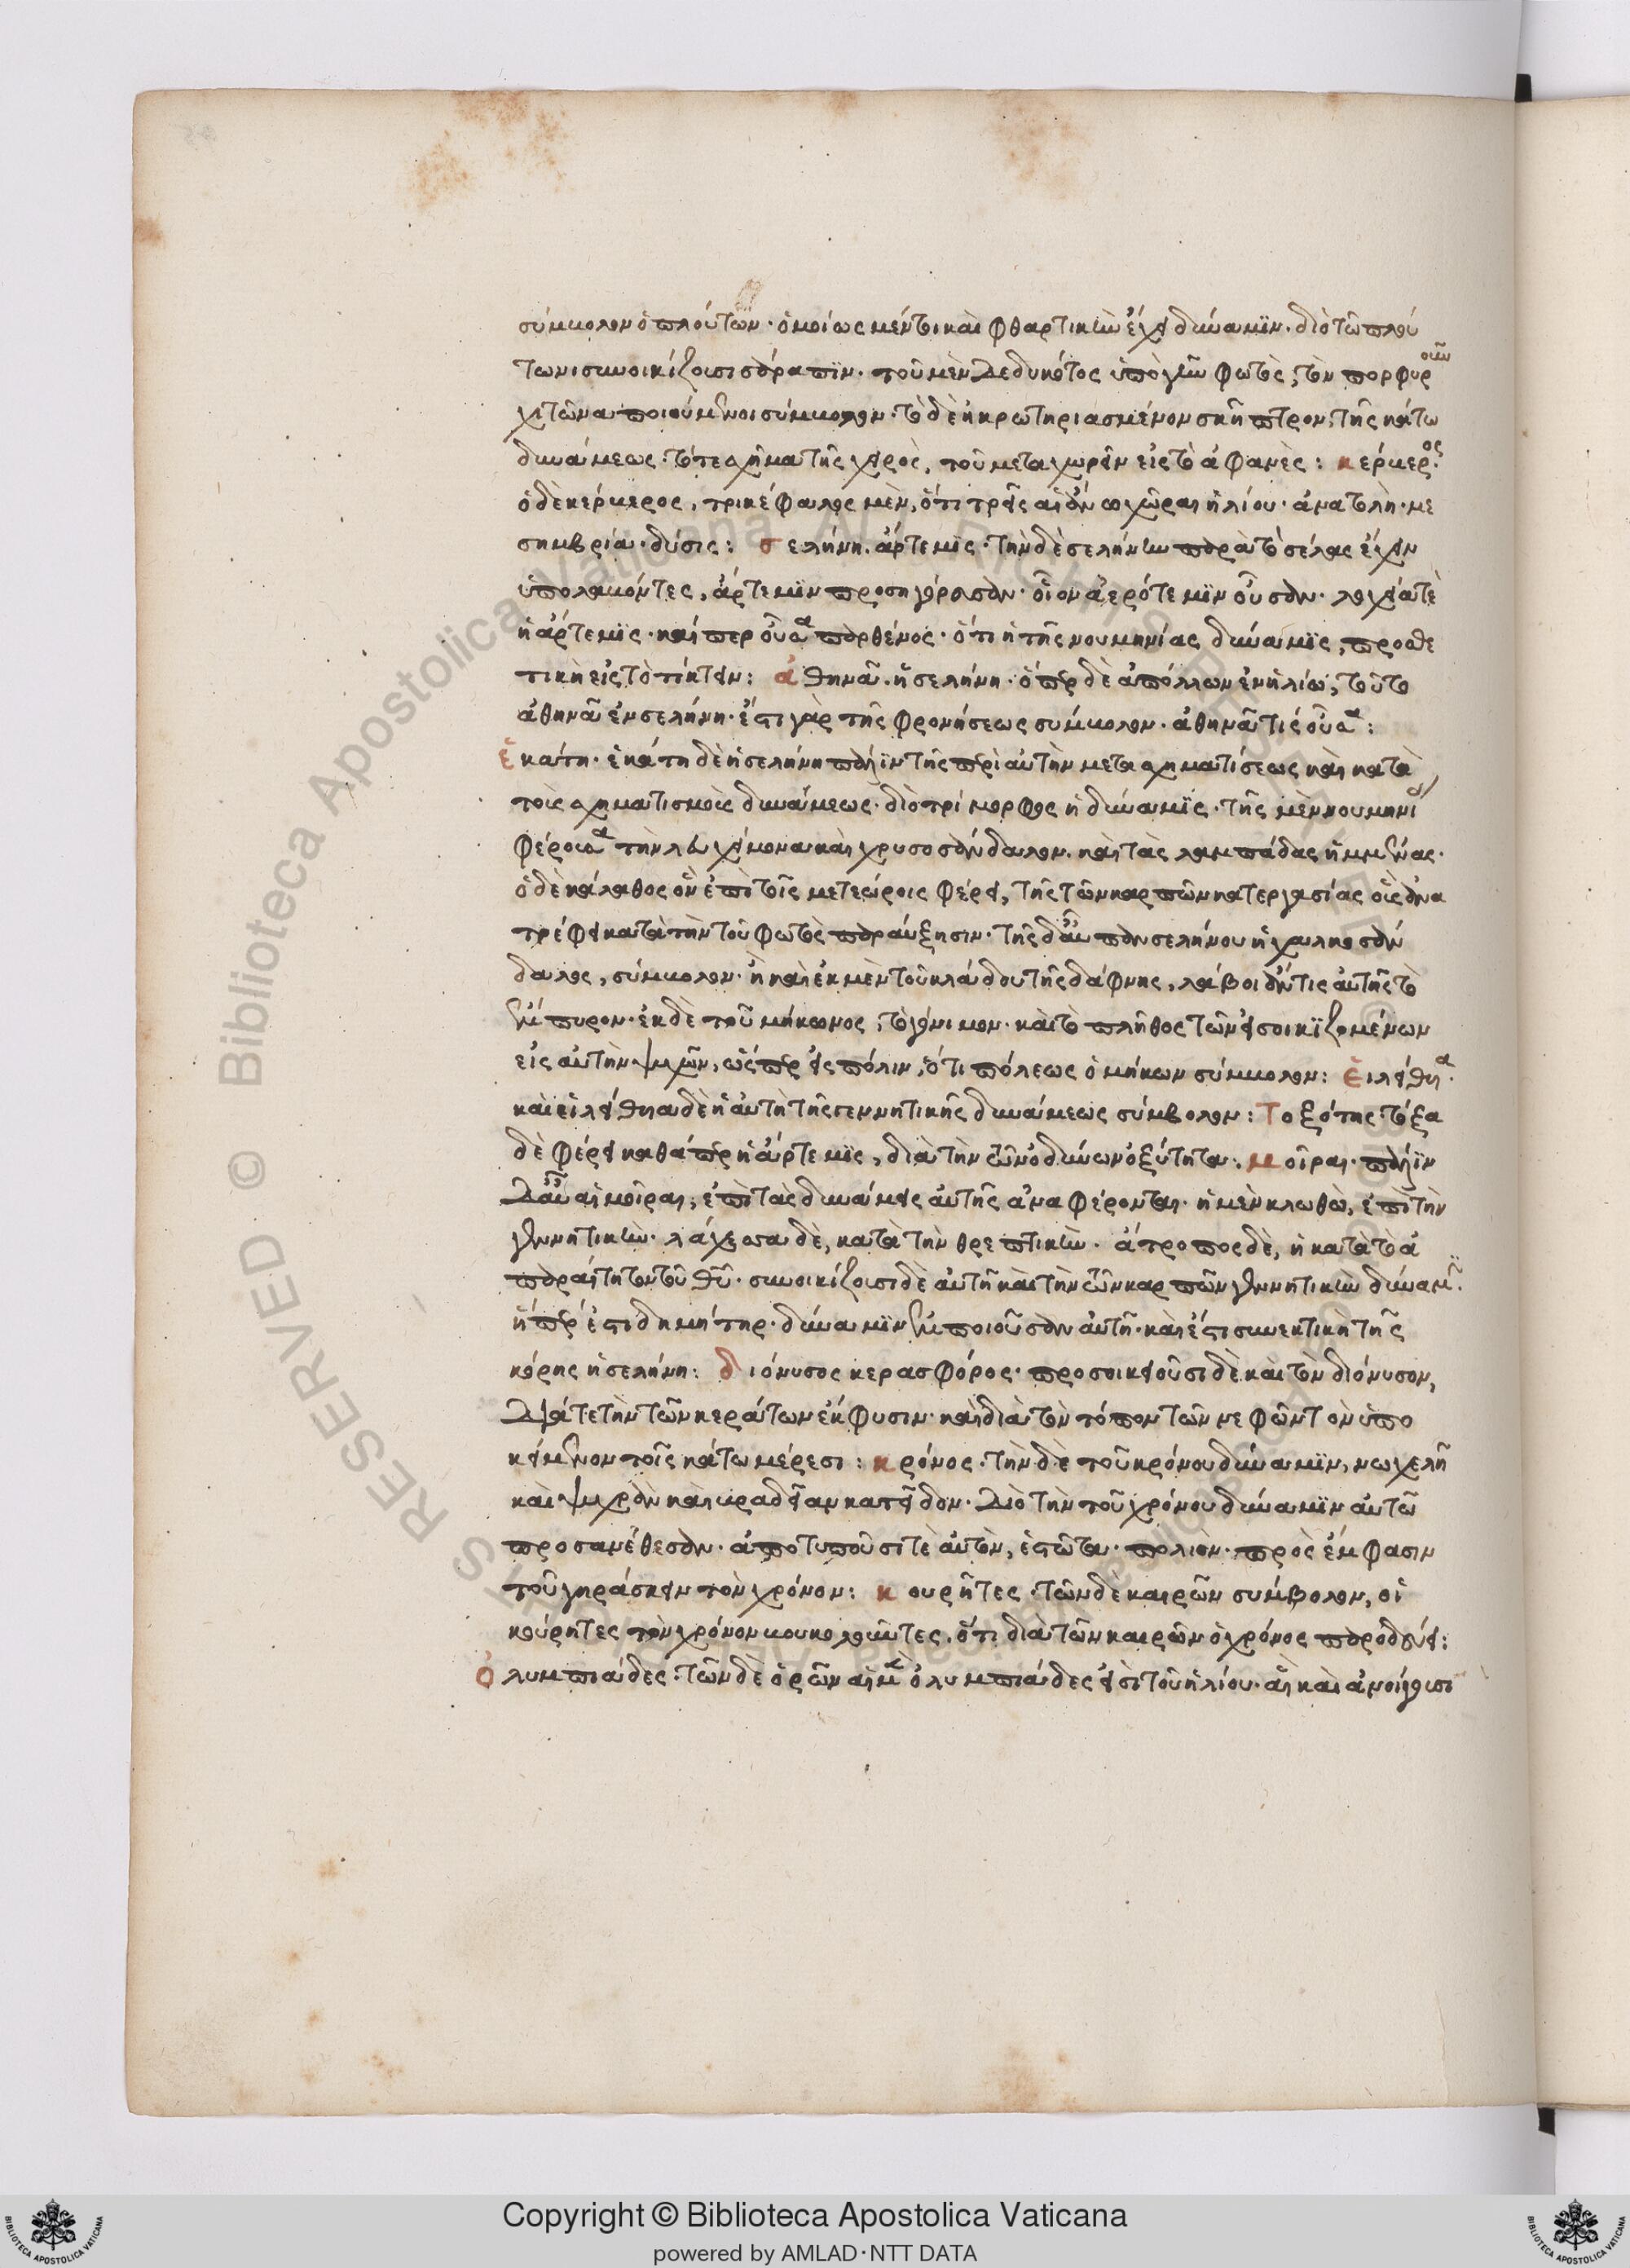 σύμβολον ὁ πλούτων· ὁμοίως μέντοι καὶ φθαρτικὴν ἔχει δύναμϊν· διὸ τῶ πλού
τωνι συνοικίζουσι σάραπϊν· τοῦ μὲν δεδυκότος ὑπὸ γῆν φωτὸς, τὸν πορφυροῦν
χιτῶνα ποιούμενοι σύμβολον· τὸ δὲ ἠκρωτηριασμένον σκῆπτρον, τῆς κάτω
δυνάμεως· τό τε σχῆμα τῆς χειρὸς, τοῦ μεταχωρεῖν εἰς τὸ ἀφανὲς: κέρβερος·
ὁ δὲ κέρβερος, τρικέφαλος μὲν, ὅτι τρεῖς αἱ ἄνω χῶραι ἡλίου· ἀνατολὴ· με
σημβρία· δύσις: σελήνη. ἄρτεμϊς· τὴν δὲ σελήνην παρὰ τὸ σέλας ἔχειν
ὑπολαβόντες, ἄρτεμϊν προσηγόρευσαν· οἷον ἀερότεμϊν οὖσαν· λοχεία τὲ
ἡ ἄρτεμϊς· καίπερ οὖσα παρθένος· ὅτι ἡ τῆς νουμηνίας δύναμϊς, προσθε
τικὴ εἰς τὸ τίκτειν: ἀθηνᾶ. ἡ σελήνη· ὅπερ δὲ ἀπόλλων ἐν ἡλίω, τοῦτο
ἀθηνᾶ ἐν σελήνη· ἔστι γὰρ τῆς φρονήσεως σύμβολον· ἀθηνᾶ τὶς οὖσα:
ἑκάτη· ἑκάτη δὲ ἡ σελήνη πάλϊν τῆς περὶ αὐτὴν μετασχηματίσεως καὶ κατὰ
τοὺς σχηματισμοὺς δυνάμεως· διὸ τρίμορφος ἡ δύναμϊς· τῆς μὲν νουμηνί
φέρουσα τὴν λευχείμονα καὶ χρυσοσάνδαλον. καὶ τὰς λαμπάδας ἡμμένας·
ὁ δὲ κάλαθος ὃν ἐπὶ τοῖς μετεώροις φέρει, τῆς τῶν καρπῶν κατεργασίας οὓς ἀνα
τρέφει κατὰ τὴν τοῦ φωτὸς παραύξησιν· τῆς δ᾽ αὖ πανσελήνου ἡ χαλκοσάν
δαλος, σύμβολον· ἢ καὶ ἐκ μὲν τοῦ κλάδου τῆς δάφνης, λάβοι ἄν τις αὐτῆς τὸ
ἔμπυρον· ἐκ δὲ τοῦ μήκωνος, τὸ γόνιμον· καὶ τὸ πλῆθος τῶν εἰσοικϊζομένων
εἰς αὐτὴν ψυχῶν, ὥσπερ εἰς πόλιν, ὅτι πόλεως ὁ μήκων σύμβολον: Εἰλείθυα·
καὶ εἰλείθυα δὲ ἡ αὐτὴ τῆς γεννητικῆς δυνάμεως σύμβολον: Τοξότης· τόξα
δὲ φέρει καθάπερ ἡ ἄρτεμϊς, διὰ τὴν τῶν ὀδύνων ὀξύτητα: μοῖραι· πάλϊν
δ᾽ αὖ αἱ μοῖραι, ἐπὶ τὰς δυνάμεις αὐτῆς ἀναφέρονται· ἡ μὲν κλωθὼ, ἐπὶ τὴν
γεννητικὴν· λάχεσα δὲ, κατὰ τὴν θρεπτικὴν· ἄτροπος δὲ, ἡ κατὰ τὸ ἀ
παραίτητον τοῦ θῦ· συνοικίζουσι δὲ αὐτῆ καὶ τὴν τῶν καρπῶν γεννητικὴν δύναμϊ·
ἥπερ ἐστὶ δημήτηρ· δύναμϊν ἐμποιοῦσαν αὐτῆ· καὶ ἔστι συνεκτικὴ τῆς
κόρης ἡ σελήνη: διόνυσος κερασφόρος· προσοικειοῦσι δὲ καὶ τὸν διόνυσον,
διά τε τὴν τῶν κεράτων ἔκφυσιν· καὶ διὰ τὸν τόπον τῶν νεφῶν τὸν ὑπο
κείμενον τοῖς κάτω μέρεσι: κρόνος· τὴν δὲ τοῦ κρόνου δύναμϊν, νωχελῆ
καὶ ψυχρὰν καὶ βραδεῖαν κατεῖδον· διὸ τὴν τοῦ χρόνου δύναμϊν αὐτῶ
προσανέθεσαν· ἀποτυποῦσί τὲ αὐτὸν, ἑστῶτα· πολιὸν· πρὸς ἔμφασιν
τοῦ γηράσκειν τὸν χρόνον: κουρῆτες· τῶν δὲ καιρῶν σύμβολον, οἱ
κούρητες τὸν χρόνον βουκολοῦντες, ὅτι διὰ τῶν καιρῶν ὁ χρόνος παροδεύει:
ὀλυμπιάδες· τῶν δὲ ὁρῶν αἱ μὲν ὀλυμπιάδες εἰσὶ τοῦ ἡλίου· αἳ καὶ ἀνοίγουσι
Copyright © Biblioteca Apostolica Vaticana
powered by AMLAD·NTT DATA